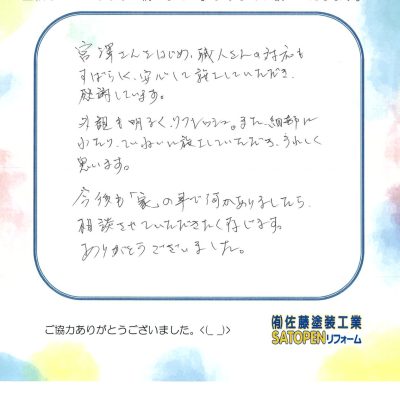 宮澤さんをはじめ、職人さんの対応も
すばらしく、安心して施工していただき、
感謝しています。
外観も明るくリフレッシュ。また、細部に
わたり、ていねいに施工していただき、うれしく
思います。
今後も「家」の事で何かありましたら、
相談させていただきたく存じます。
ありがとうございました。
ご協力ありがとうございました。<(_ _)>
㈲佐藤塗装工業
SATOPENリフォーム